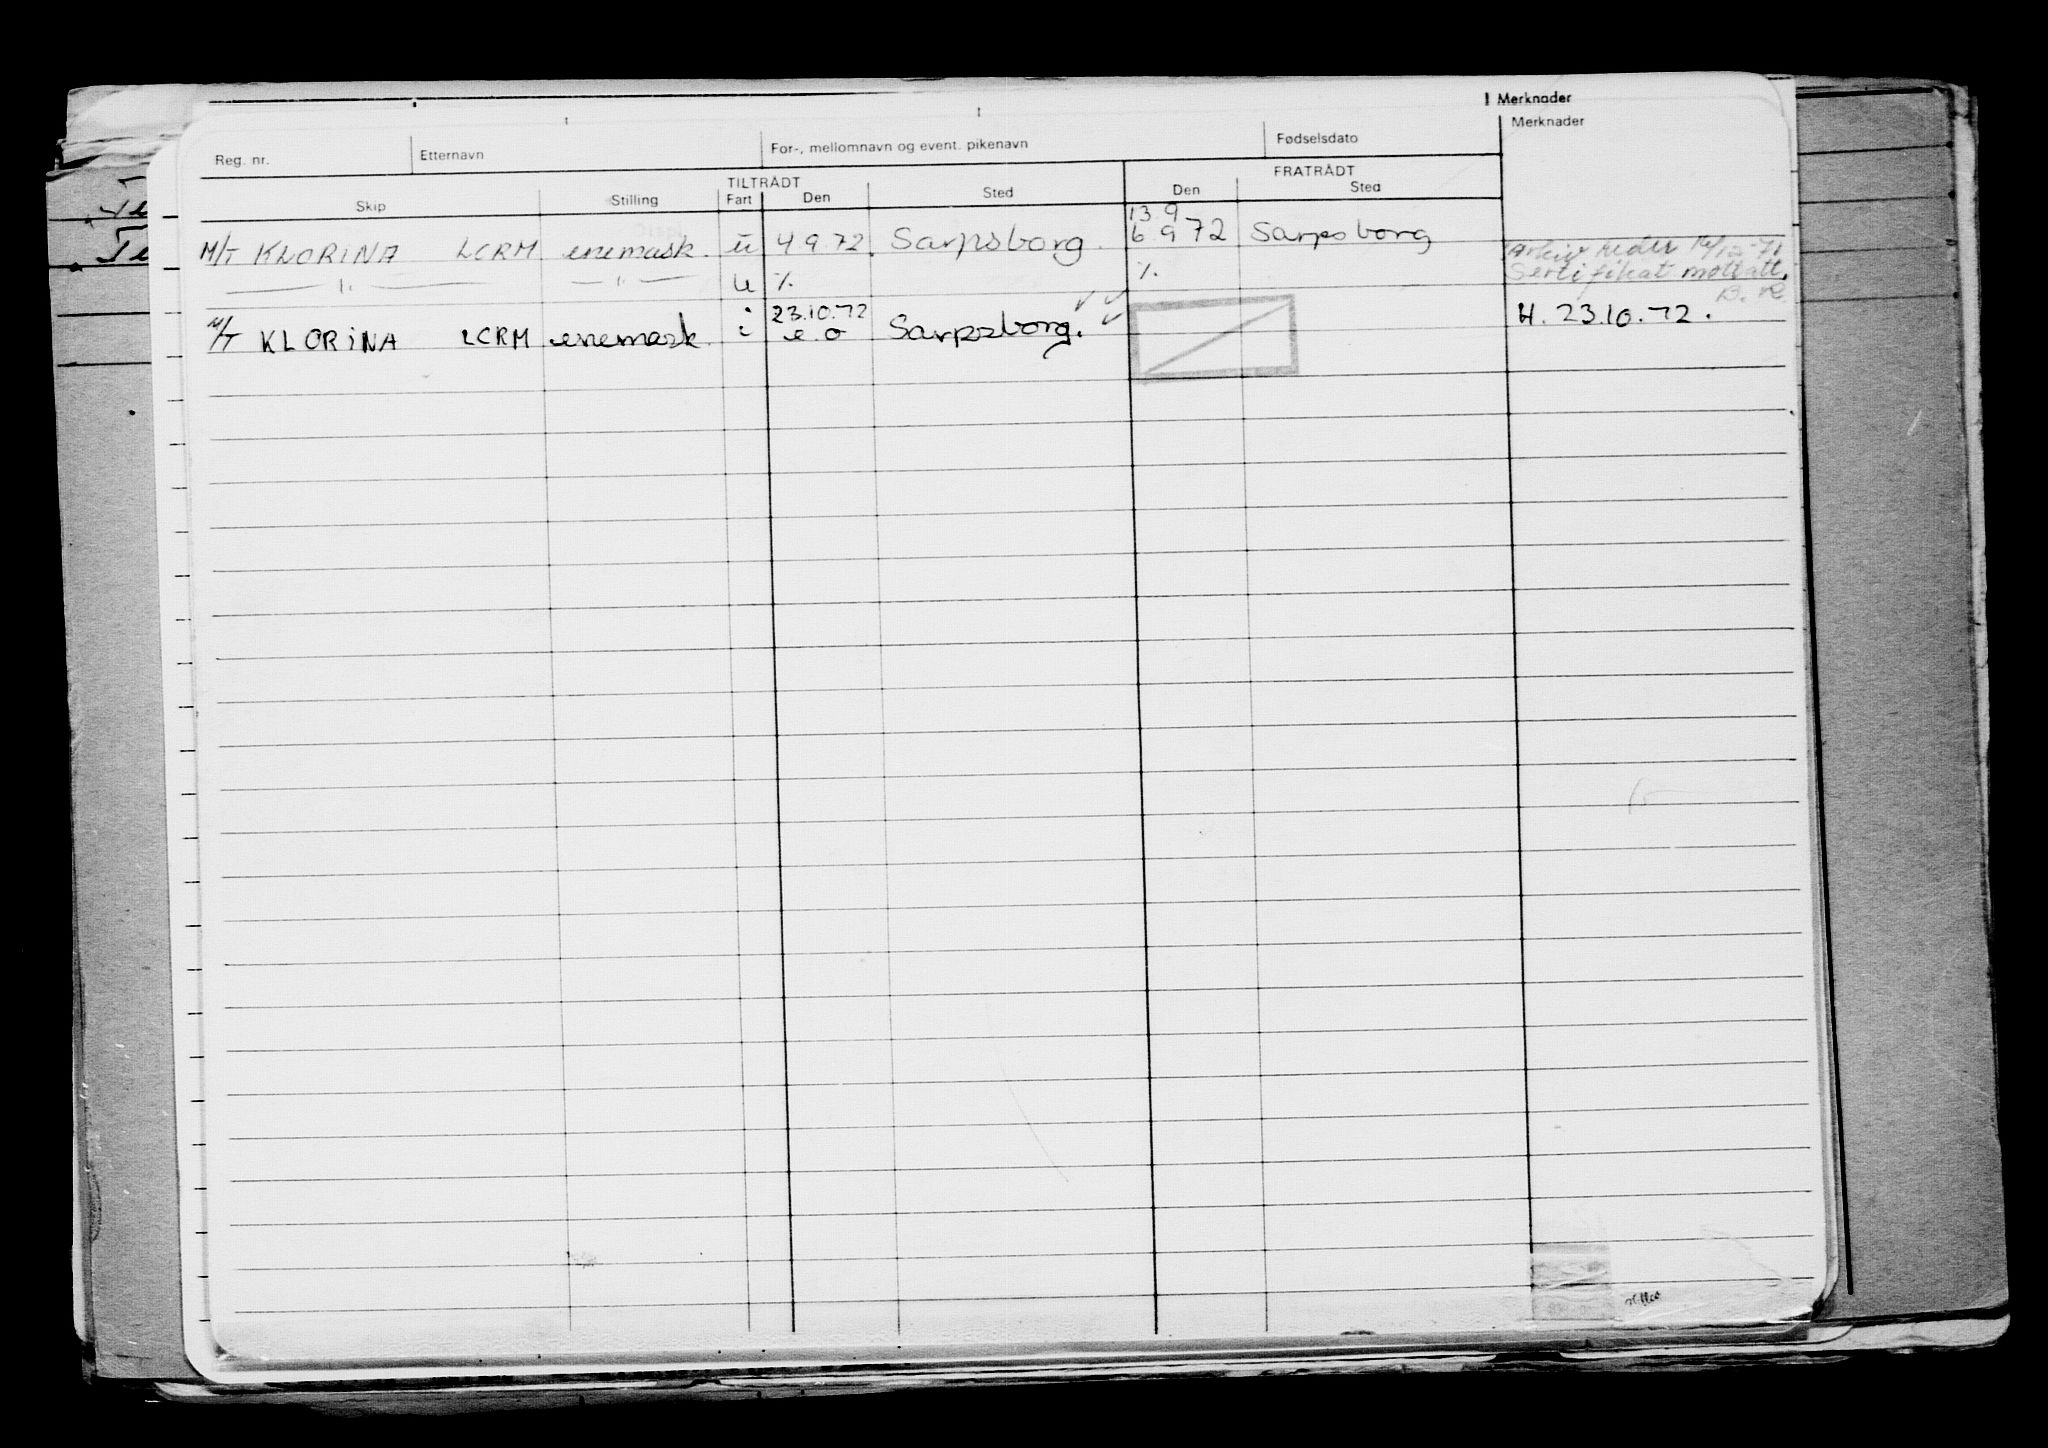 Merknader
Merknader
Reg. nr. Etternavn For-, mellomnavn og event. pikenavn Fødselsdato
TILTRÅDT FRATRÅDT
Skip Stilling Fart Den Sted Den Sted
13.9
M/T KLORINA LCRM enemask. u 4 9.72. Sarpsborg. 6.9 72 Sarpsborg
— " — — " — u ٪ ٪
Sertifikat mottatt.
B. R
23.10.72
M/T KLORINA LCRM enemask. i e.o Sarpsborg. H. 23.10.72.
Te
Te